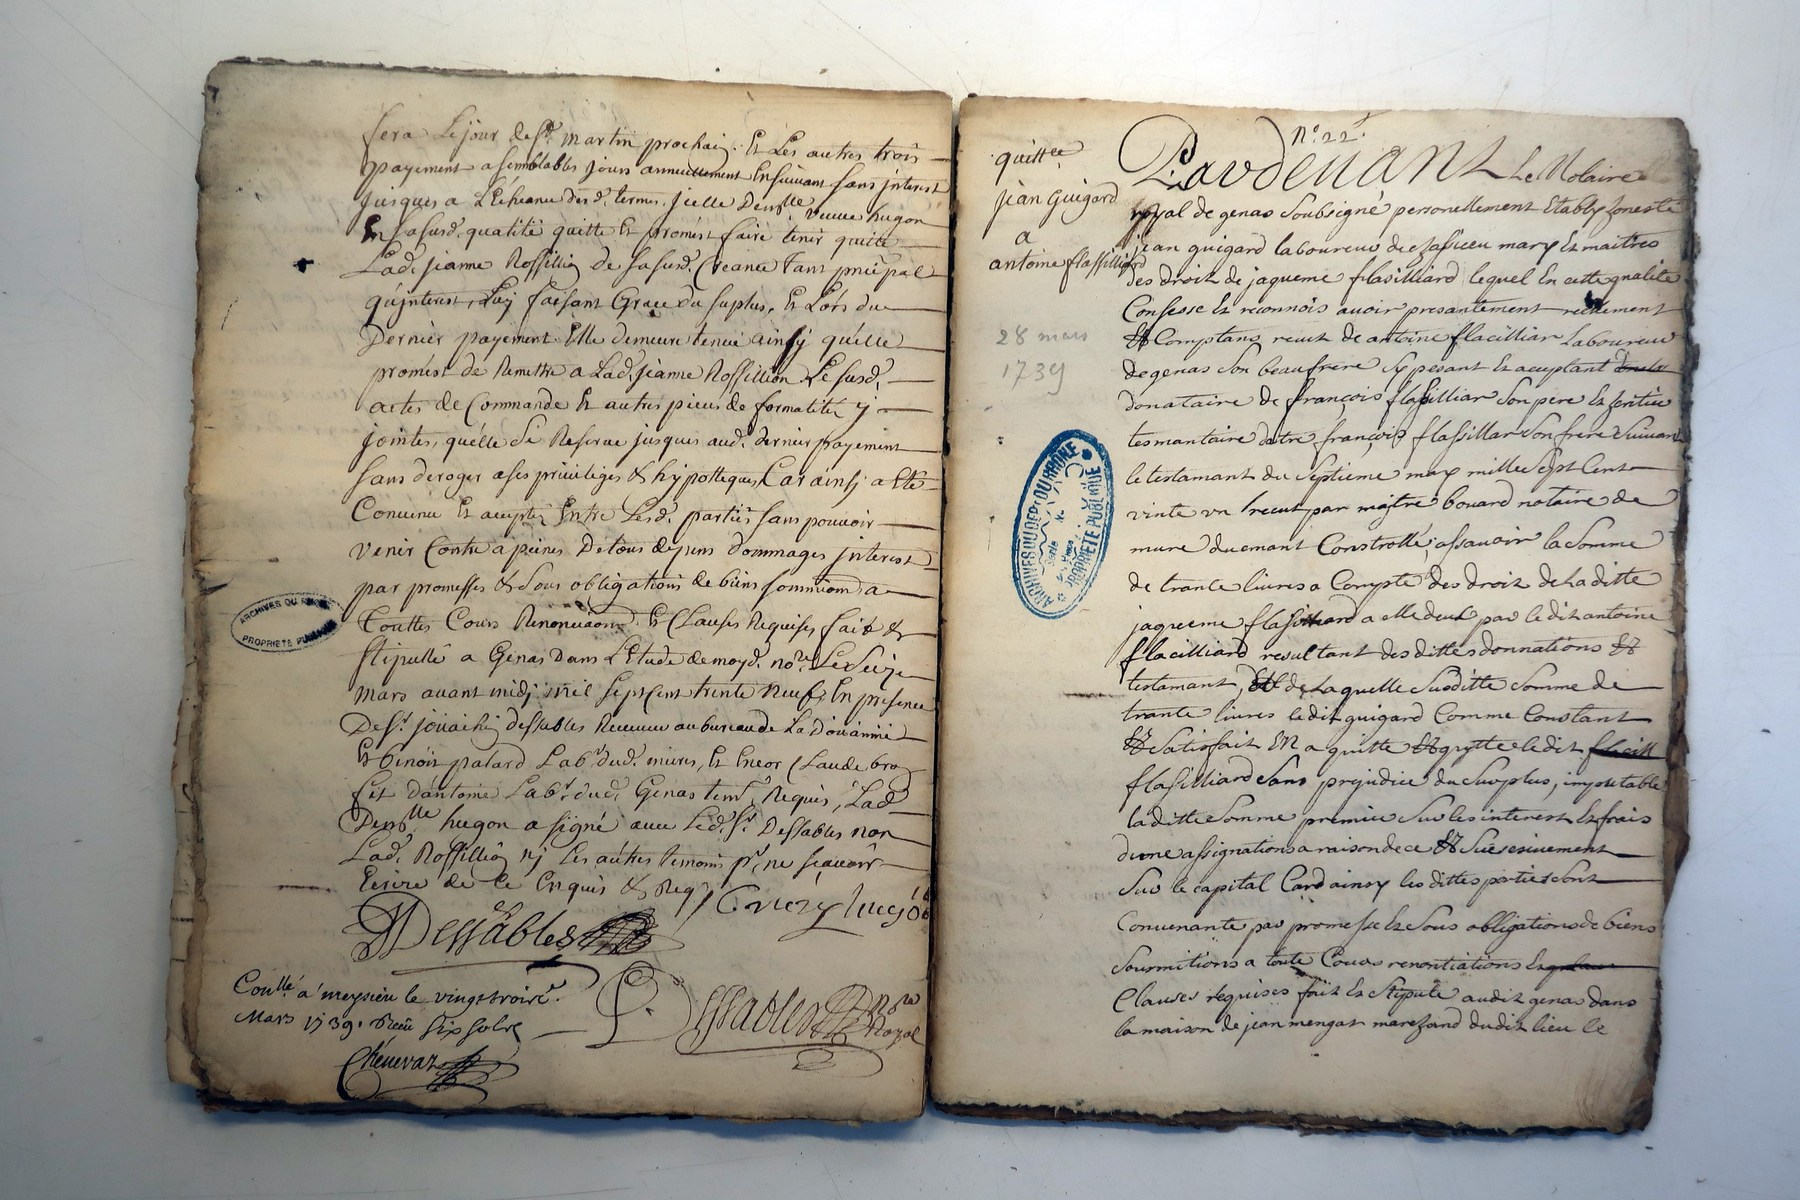 sera Le jour de st. martin prochain. Et Les autres trois
payement a semblables jours annuellement Ensuivant sans interest
jusques a L'écheance desd. termes. jcelle Demlle veuve hugon
En sa susd. qualité quitte Et promêt faire tenir quitte
Lad. jeanne Rossillion de sa susd. Creance tant prie͠pal
qu'interest, Luy faisant Grace du surplus, Et Lors du
Dernier payement Elle demeure tenue ainsy qu'elle
promêt de Remettre a Lad. jeanne Rossillion Le susd.
actes de Commande Et autres pieces de formalitéz y
jointes, qu'elle Se Reserve jusques aud. dernier payement
sans deroger a ses privileges & hypotteques, Car ainsi a Eté
Convenu Et accepté Entre Lesd. parties sans pouvoir
venir Contre a peines De tous depens dommages jnterest
par promesses & Sous obligations de biens soumission a
Touttes Cours Renonciaons. Et Clauses Requises fait &
stipullé a Genas dans L'Etude de moyd. nore. Le Seize
mars avant midj mil sept cent trente neufz En presence
De sr. jouachin dessables Receveur au bureau de La Doüanne
Et benoit patard Labr. dud. mures, Et Encor Claude bro
fils d'antoine Labr. dud. Genas temt. Requis, Lad.
Demlle hugon a signé avec Led. sr. Dessables non
Lad. Rossillion nj Les autres temoins pr. ne sçavoir
Ecrire de ce Enquis & Reqs
hugon
Dessables
Conllé a meysieu le vingt troise.
Mars 1739. Receu six sols
Dessables Nore Royal
Chenevaz
ARCHIVES DU RHONE
PROPRIETE PUBLIQUE
N°. 22.
quittce
jean Guigard
a
antoine flassilliard
28 mars
1739
ARCHIVES DU DEPt DU RHONE
PROPRIETE PUBLIQUE
Pardevant Le Notaire
royal de genas Soubsigné personellement Etably honeste
jean guigard laboureur de chassieu mary Et maitres
des droit de jaqueme flasilliard lequel En cette qualité
Confesse Et reconnois avoir presantement reellement
Et Comptans receu de antoine flacilliar Laboureur
de genas Son beaufrere Sy pesant Et aceptant
donataire de françois flassilliar Son pere Et heritier
tesmantaire dotre françois flassillar Son frere Suivant
le testamant du Septieme may mille Sept Cent
vinte un receut par maitre bouard notaire de
mure duemant Constrollé, assavoir la Somme
de trante livres a Compte des droit de Laditte
jaqueme flasilliard a elle deub par le dit antoine
flacilliard resultant des dittes donnations Et
testamant, de Laquelle Susditte Somme de
trante livres ledit guigard Comme Constant
Et Satisfait En a quitte Et quytte le dit
flasilliard Sans prejudice du Surplus, imputable
laditte Somme premier Sur les interest Et frais
dune assignations a raison de ce Et Sucesivement
Sur le capital Card ainsy les dittes parties Sont
Convenante par promesse Et Sous obligations de biens
Soumitions a toute Cours renontiations Et
Clauses requises fait Et Stipulé audit genas dans
la maison de jean mengat marchand dudit lieu le